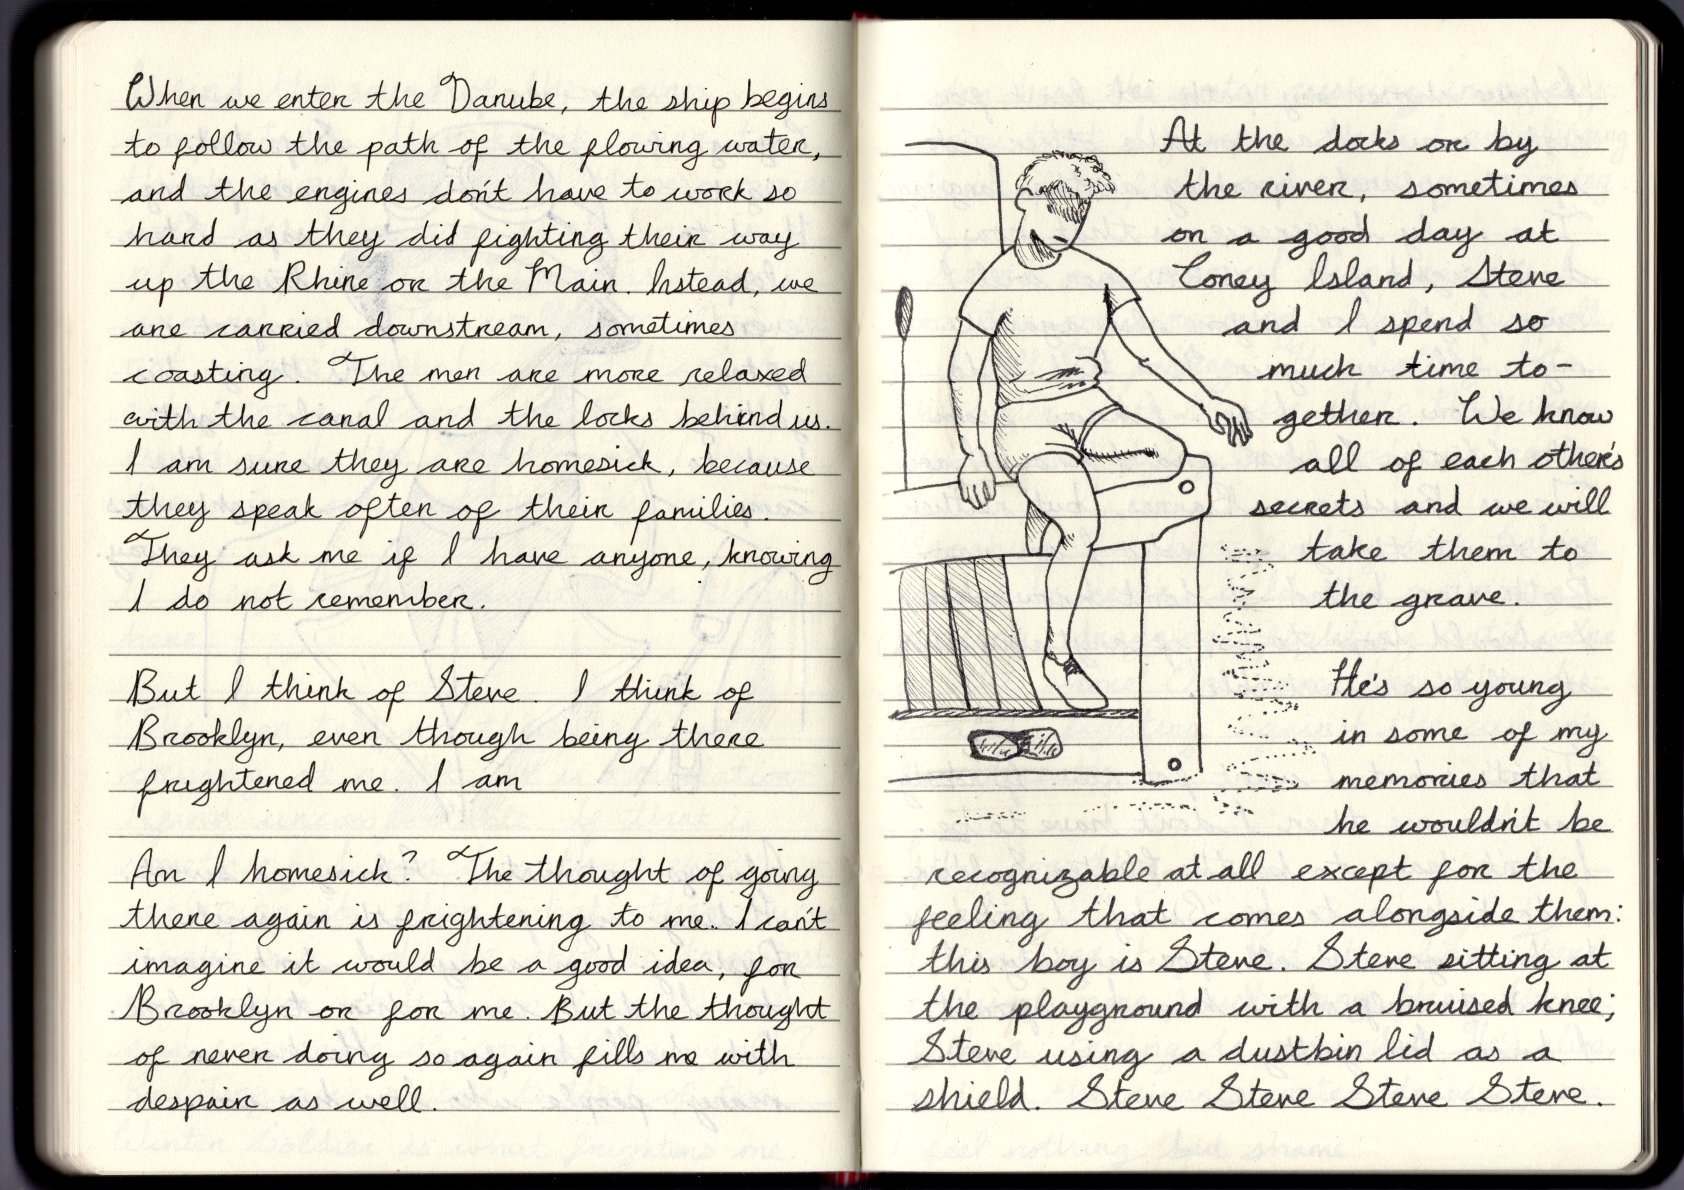 When we enter the Danube, the ship begins
to follow the path of the flowing water,
and the engines don't have to work so
hard as they did fighting their way
up the Rhine or the Main. Instead, we
are carried downstream, sometimes
coasting. The men are more relaxed
with the canal and the locks behind us.
I am sure they are homesick, because
they speak often of their families.
They ask me if I have anyone, knowing
I do not remember.
But I think of Steve. I think of
Brooklyn, even though being there
frightened me. I am
Am I homesick? The thought of going
there again is frightening to me. I can't
imagine it would be a good idea, for
Brooklyn or for me. But the thought
of never doing so again fills me with
despair as well.
At the docks or by
the river, sometimes
on a good day at
Coney Island, Steve
and I spend so
much time to-
gether. We know
all of each other's
secrets and we will
take them to
the grave.
He's so young
in some of my
memories that
he wouldn't be
recognizable at all except for the
feeling that comes alongside them:
this boy is Steve. Steve sitting at
the playground with a bruised knee;
Steve using a dustbin lid as a
shield. Steve Steve Steve Steve.